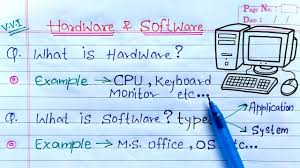 V.V.I
Hardware & Software
Page No.:
Date :
Q. What is Hardware?
Example → CPU, Keyboard
Monitor etc...
Q. What is Software? type
Application
System
Example → M.S. Office, OS etc...